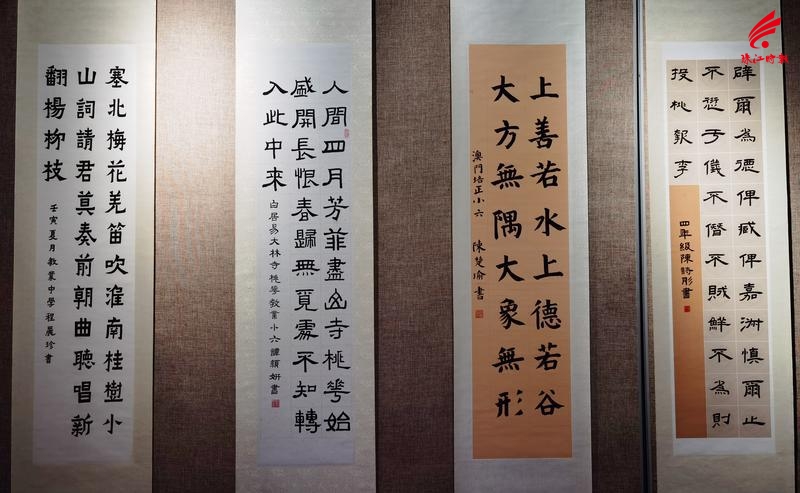 珠江时报
辟爾為德俾臧俾嘉淑慎爾止
不愆于儀不僭不賊鮮不為則
投桃報李
四年級陳詩彤書
上善若水上德若谷
大方無隅大象無形
澳門培正小六 陳楚瑜書
人間四月芳菲盡山寺桃花始
盛開長恨春歸無覓處不知轉
入此中來
白居易大林寺桃花教業小六譚穎妍書
塞北梅花羌笛吹淮南桂樹小
山詞請君莫奏前朝曲聽唱新
翻楊柳枝
壬寅夏月教業中學程麗珍書